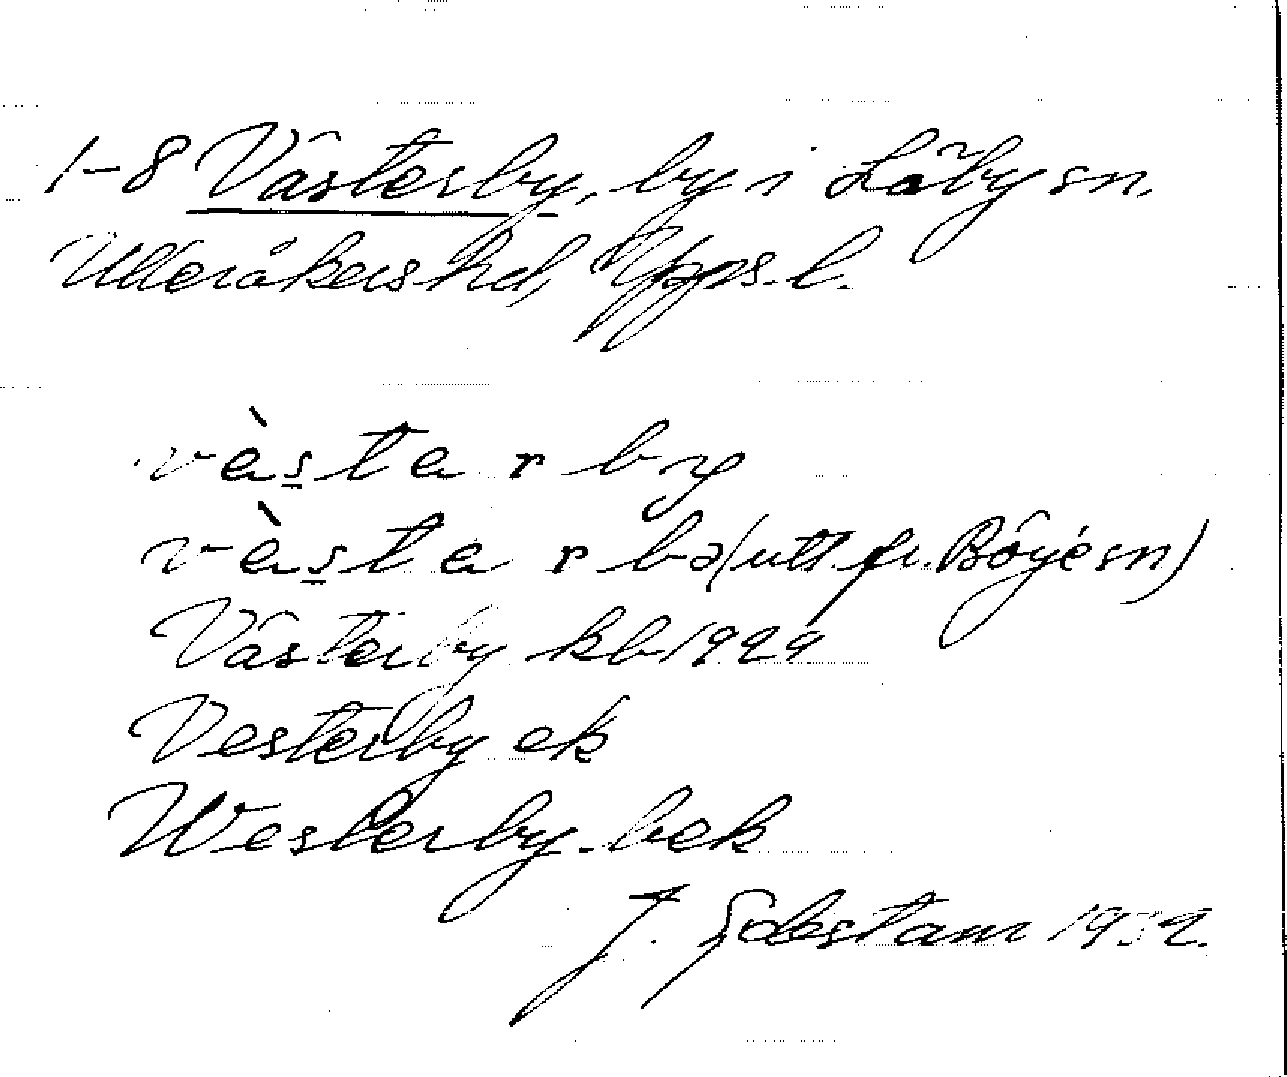 1-8 Västerby, by i Läby sn,
Ulleråkers hd, Upps. l.
vàstarby
vàstarbə (utt. fr. Börje sn)
Västerby kb 1929
Vesterby ek
Westerby bek
J. Sahlstam 1932.